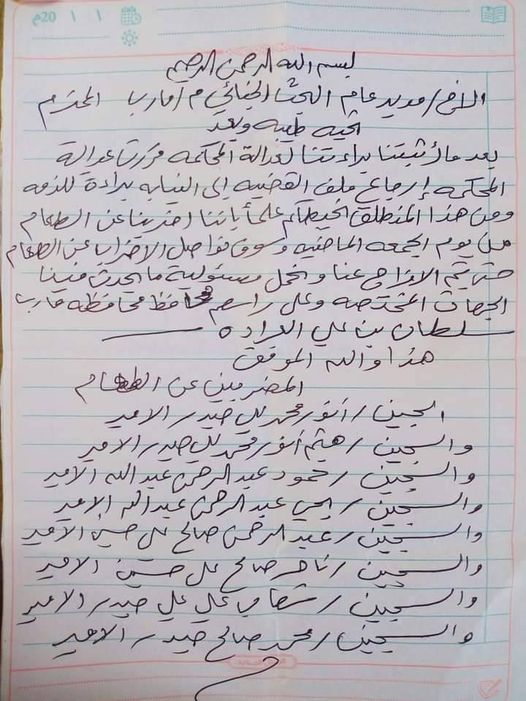 20م / / 
بسم الله الرحمن الرحيم
الاخ/ مدير عام البحث الجنائي م/مارب المحترم
تحيه طيبه وبعد
بعد ما أثبتنا براءتنا لعدالة المحكمه قررت عدالة
المحكمه إرجاع ملف القضيه إلى النيابه براءة للذمه
ومن هذا المنطلق نحيطكم علماً باننا اضربنا عن الطعام
من يوم الجمعه الماضيه وسوف نواصل الاضراب عن الطعام
حتى يتم الافراج عنا ونحمل مسئولية ما يحدث فينا
الجهات المختصه وعلى راسهم محافظ محافظه مارب
سلطان بن علي العراده
هذا والله الموفق
المضربين عن الطعام
السجين / أنور محمد علي صيدر الامير
والسجين / هيثم أنور محمد علي صيدر الامير
والسجين / محمود عبد الرحمن عبد الله الامير
والسجين / يحي عبد الرحمن عبد الله الامير
والسجين / عبد الرحمن صالح علي حسين الامير
والسجين / ناصر صالح علي حسين الامير
والسجين / علي علي صيدر الامير
والسجين / محمد صالح صيدر الامير